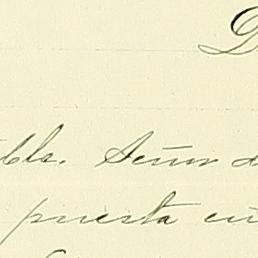 ble. Señor d
puesta en